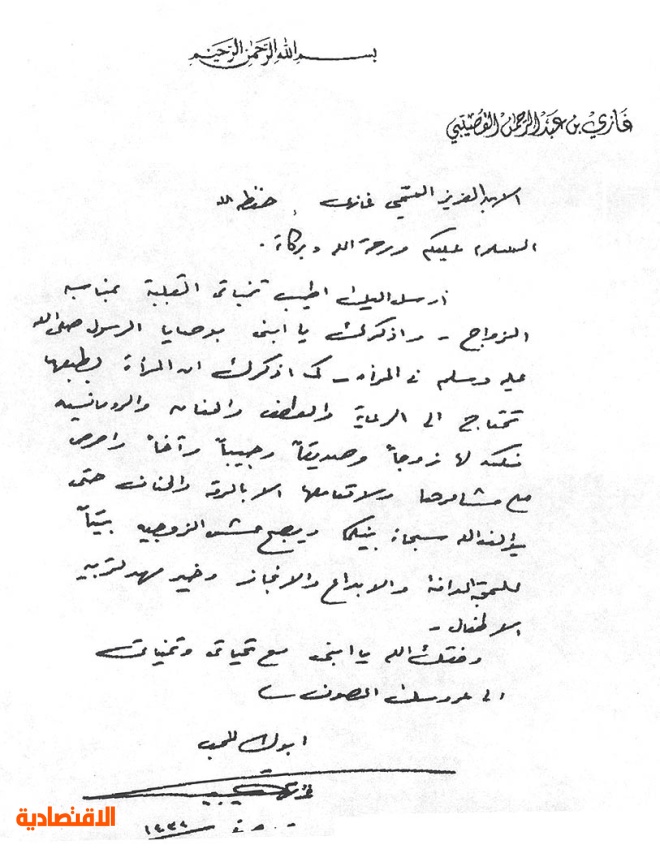 بسم الله الرحمن الرحيم
غازي بن عبدالرحمن القصيبي
الابن العزيز غازي حفظه الله
السلام عليكم ورحمة الله وبركاته.
أرسل إليك أطيب تمنياتي القلبية بمناسبة
الزواج - واذكرك يا ابني بوصايا الرسول صلى الله
عليه وسلم في المرأة - كما اذكرك ان المرأة بطبعها
تحتاج الى الرعاية والعطف والحنان والرومانسية
فكن لها زوجاً وصديقاً وحبيباً وأخاً واحرص
على مشاعرها ولا تعاملها الا بالرقة والحنان حتى
يؤلف الله سبحانه بينكما ويصبح عش الزوجية بيتاً
للمحبة الدائمة والابداع والانجاز وخير مهد لتربية
الاطفال -
وفقك الله يا ابني مع تحياتي وتمنياتي
الى عروسك المصون
ابوك المحب
١٤٢٩
الاقتصادية